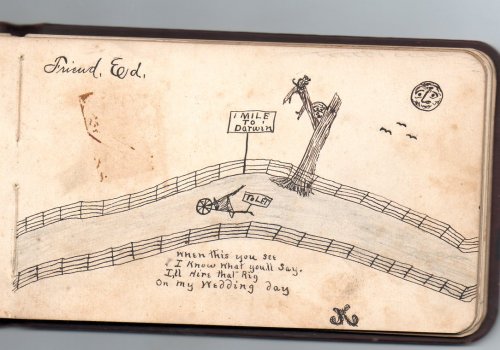 Friend, Ed.
1 MILE
TO
Darwin
TO LET
When this you see
I Know What youll Say.
I,ll Hire that Rig
On my Wedding day